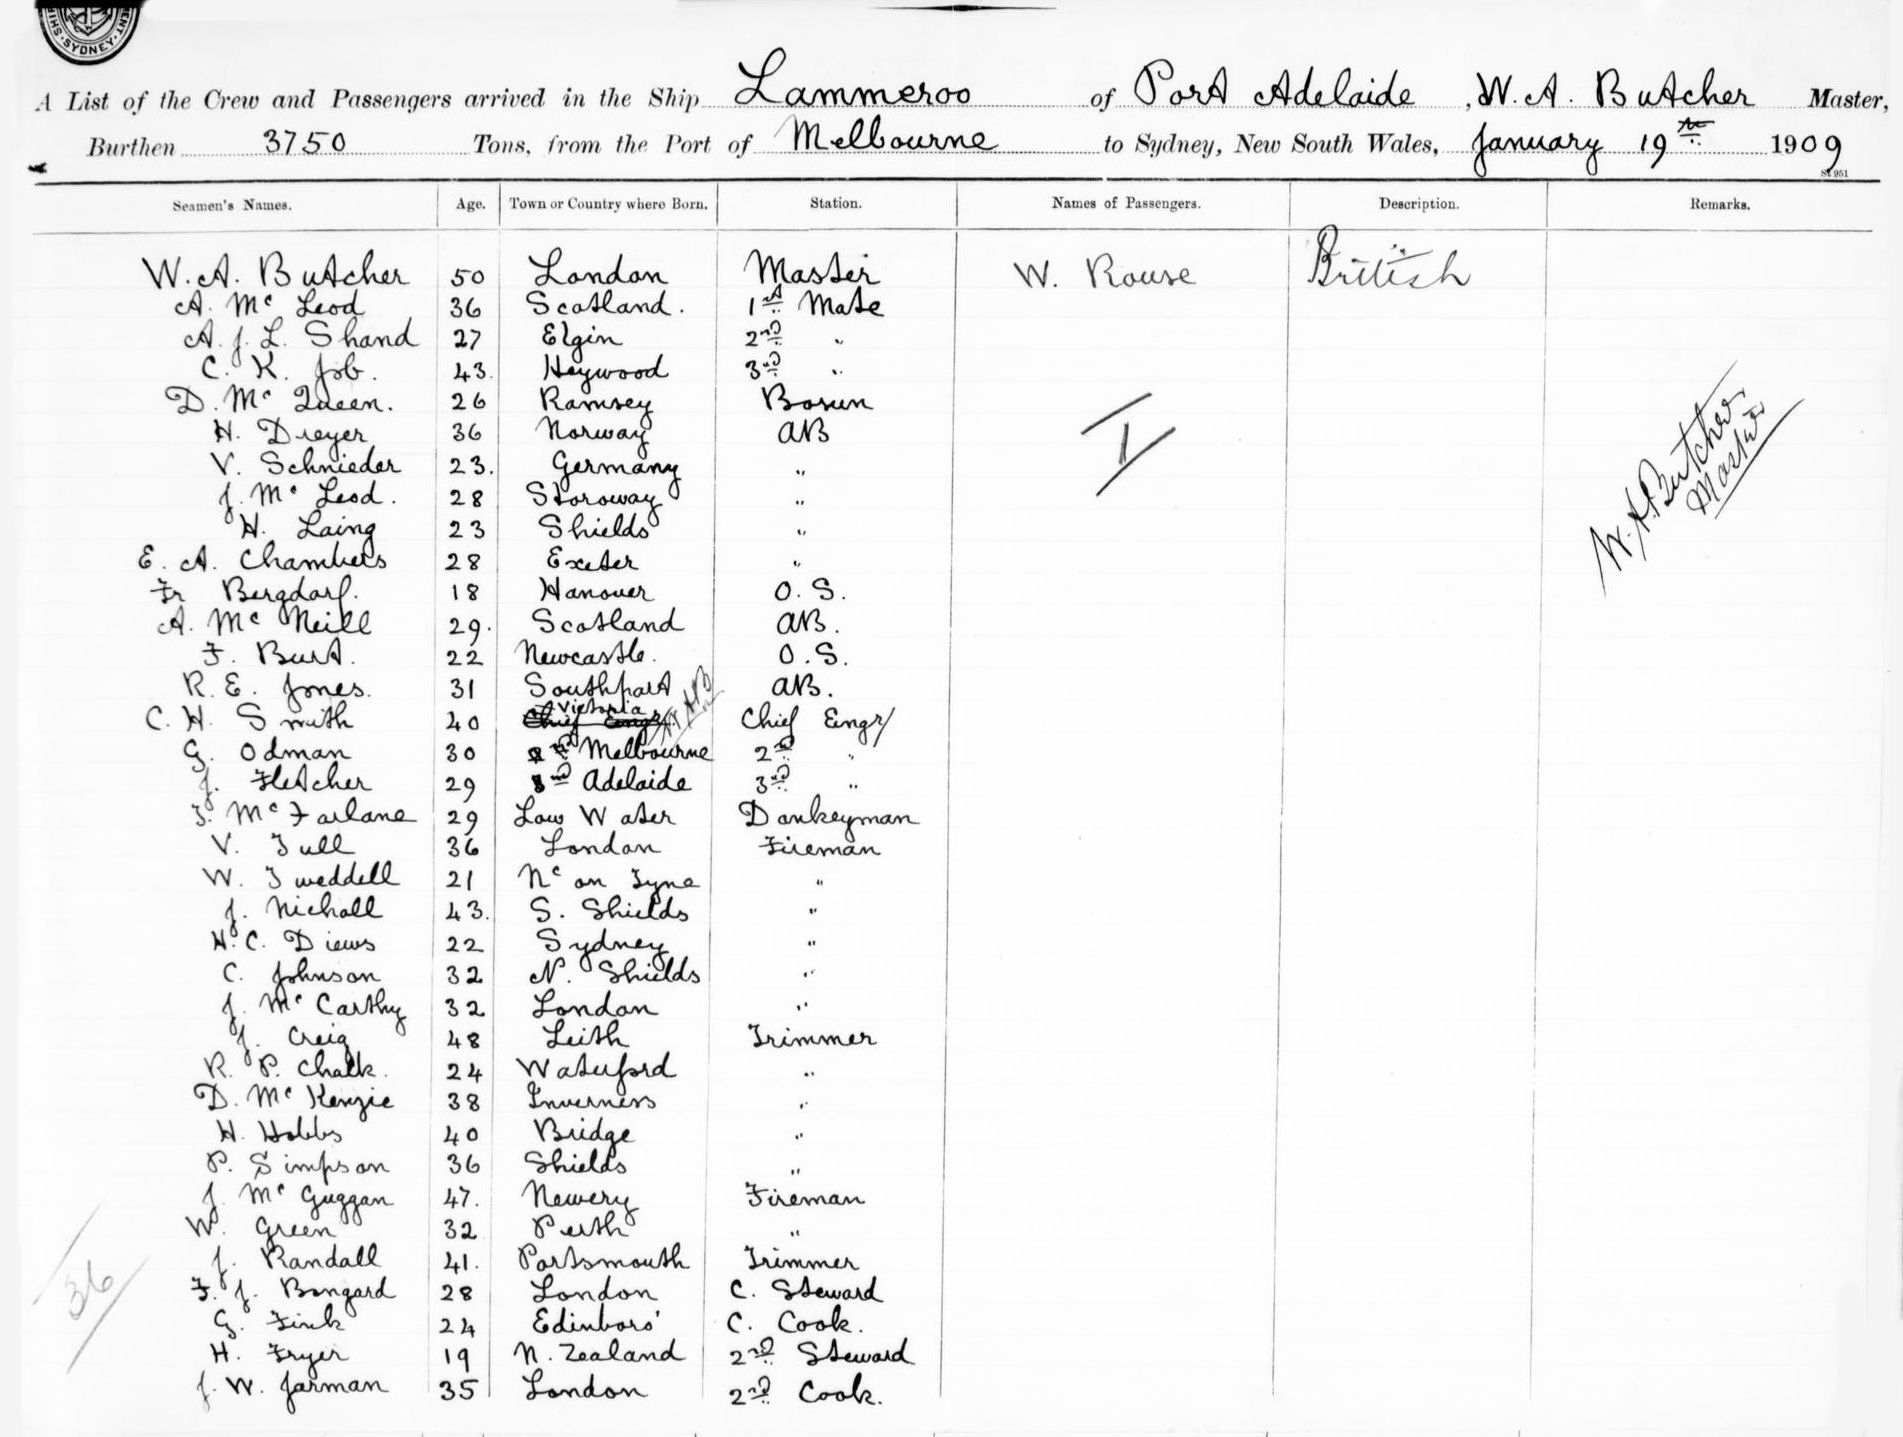 SYDNEY
A List of the Crew and Passengers arrived in the Ship Lammeroo of Port Adelaide, W. A. Butcher Master,
Burthen 3750 Tons, from the Port of Melbourne to Sydney, New South Wales, January 19th 1909
Seamen's Names. Age. Town or Country where Born. Station. Names of Passengers. Description. Remarks.
W. A. Butcher 50 London Master W. Rouse British
A. Mc Leod 36 Scotland. 1st Mate
A. J. L. Shand 27 Elgin 2nd "
C. K. Job. 43. Heywood 3rd "
D. Mc Queen. 26 Ramsey Bosun
H. Dreyer 36 Norway AB
V. Schnieder 23. Germany "
J. Mc Leod. 28 Storoway "
H. Laing 23 Shields "
E. A. Chambers 28 Exeter "
Fr Bergdorf. 18 Hanover O. S.
A. Mc Neill 29. Scotland AB.
F. Burt. 22 Newcastle. O. S.
R. E. Jones. 31 Southport AB.
C. H. Smith 40 Victoria Chief Engr
G. Odman 30 Melbourne 2nd "
J. Fletcher 29 Adelaide 3rd "
T. Mc Farlane 29 Low Water Donkeyman
V. Tull 36 London Fireman
W. Tweddell 21 Nc on Tyne "
J. Nicholl 43. S. Shields "
H. C. Diews 22 Sydney "
C. Johnson 32 N. Shields "
J. Mc Carthy 32 London "
J. Creig 48 Leith Trimmer
R. P. Chalk. 24 Waterford "
D. Mc Kenzie 38 Inverness "
H. Hobbs 40 Bridge "
P. Simpson 36 Shields "
J. Mc Guggan 47. Newery Fireman
W. Green 32 Perth "
J. Randall 41. Portsmouth Trimmer
F. J. Bongard 28 London C. Steward
G. Fink 24 Edinboro' C. Cook.
H. Fryer 19 N. Zealand 2nd Steward
J. W. Jarman 35 London 2nd Cook.
1
W. A. Butcher
Master
36